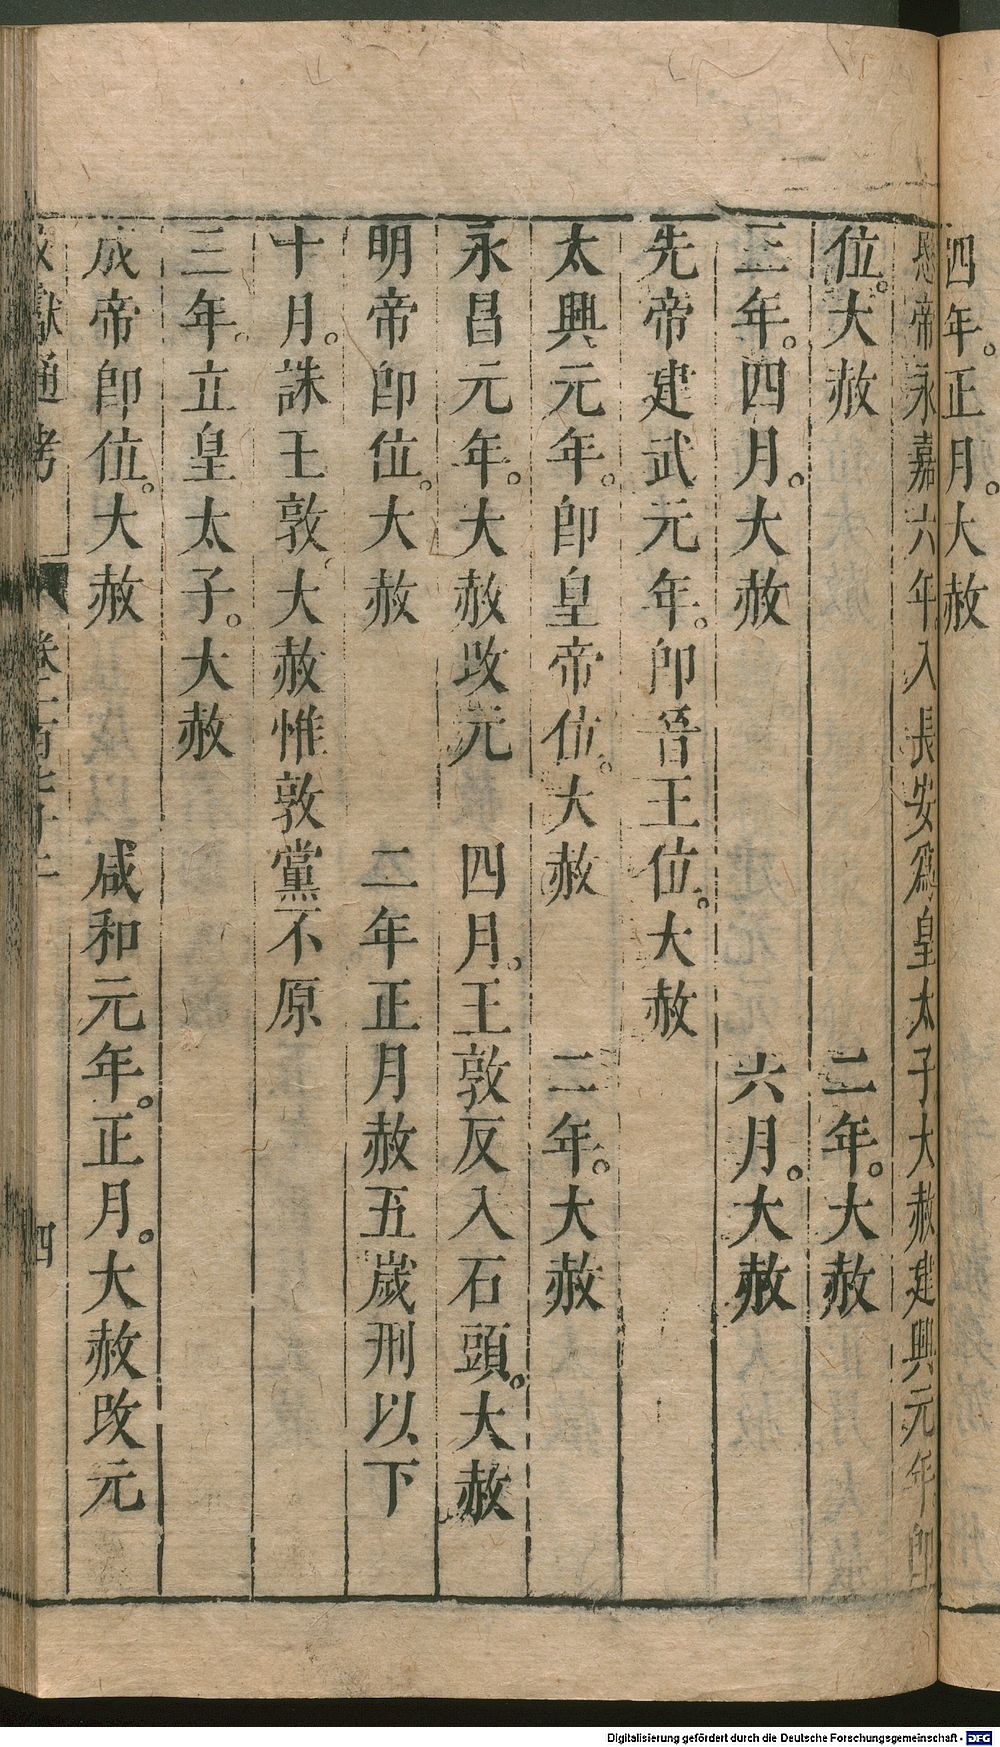 四年。正月。大赦
愍帝永嘉六年入長安爲皇太子大赦建興元年卽
位。大赦　二年。大赦
三年。四月。大赦　六月。大赦
先帝建武元年。卽晉王位。大赦
太興元年。卽皇帝位。大赦　二年。大赦
永昌元年。大赦改元　四月。王敦反入石頭。大赦
明帝卽位。大赦　二年正月赦五歲刑以下
十月。誅王敦。大赦惟敦黨不原
三年。立皇太子。大赦
成帝卽位。大赦　咸和元年。正月。大赦改元
獻通考　四
Digitalisierung gefördert durch die Deutsche Forschungsgemeinschaft - DFG